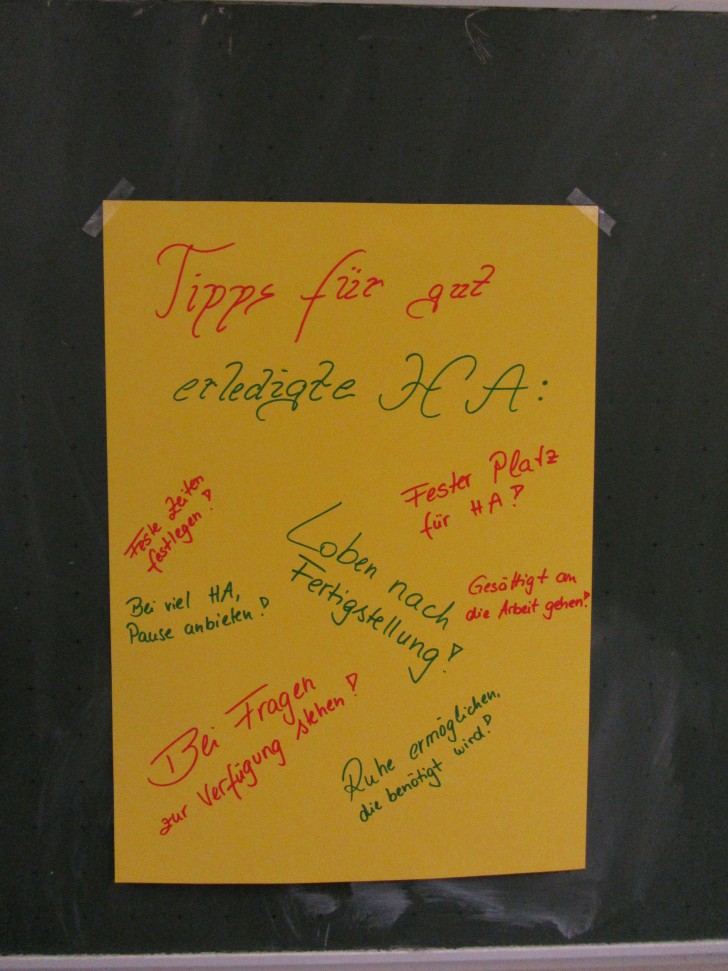 Tipps für gut
erledigte HA:
Feste Zeiten
festlegen!
Fester Platz
für HA!
Loben nach
Fertigstellung!
Bei viel HA,
Pause anbieten!
Gesättigt an
die Arbeit gehen!
Bei Fragen
zur Verfügung stehen!
Ruhe ermöglichen,
die benötigt wird!